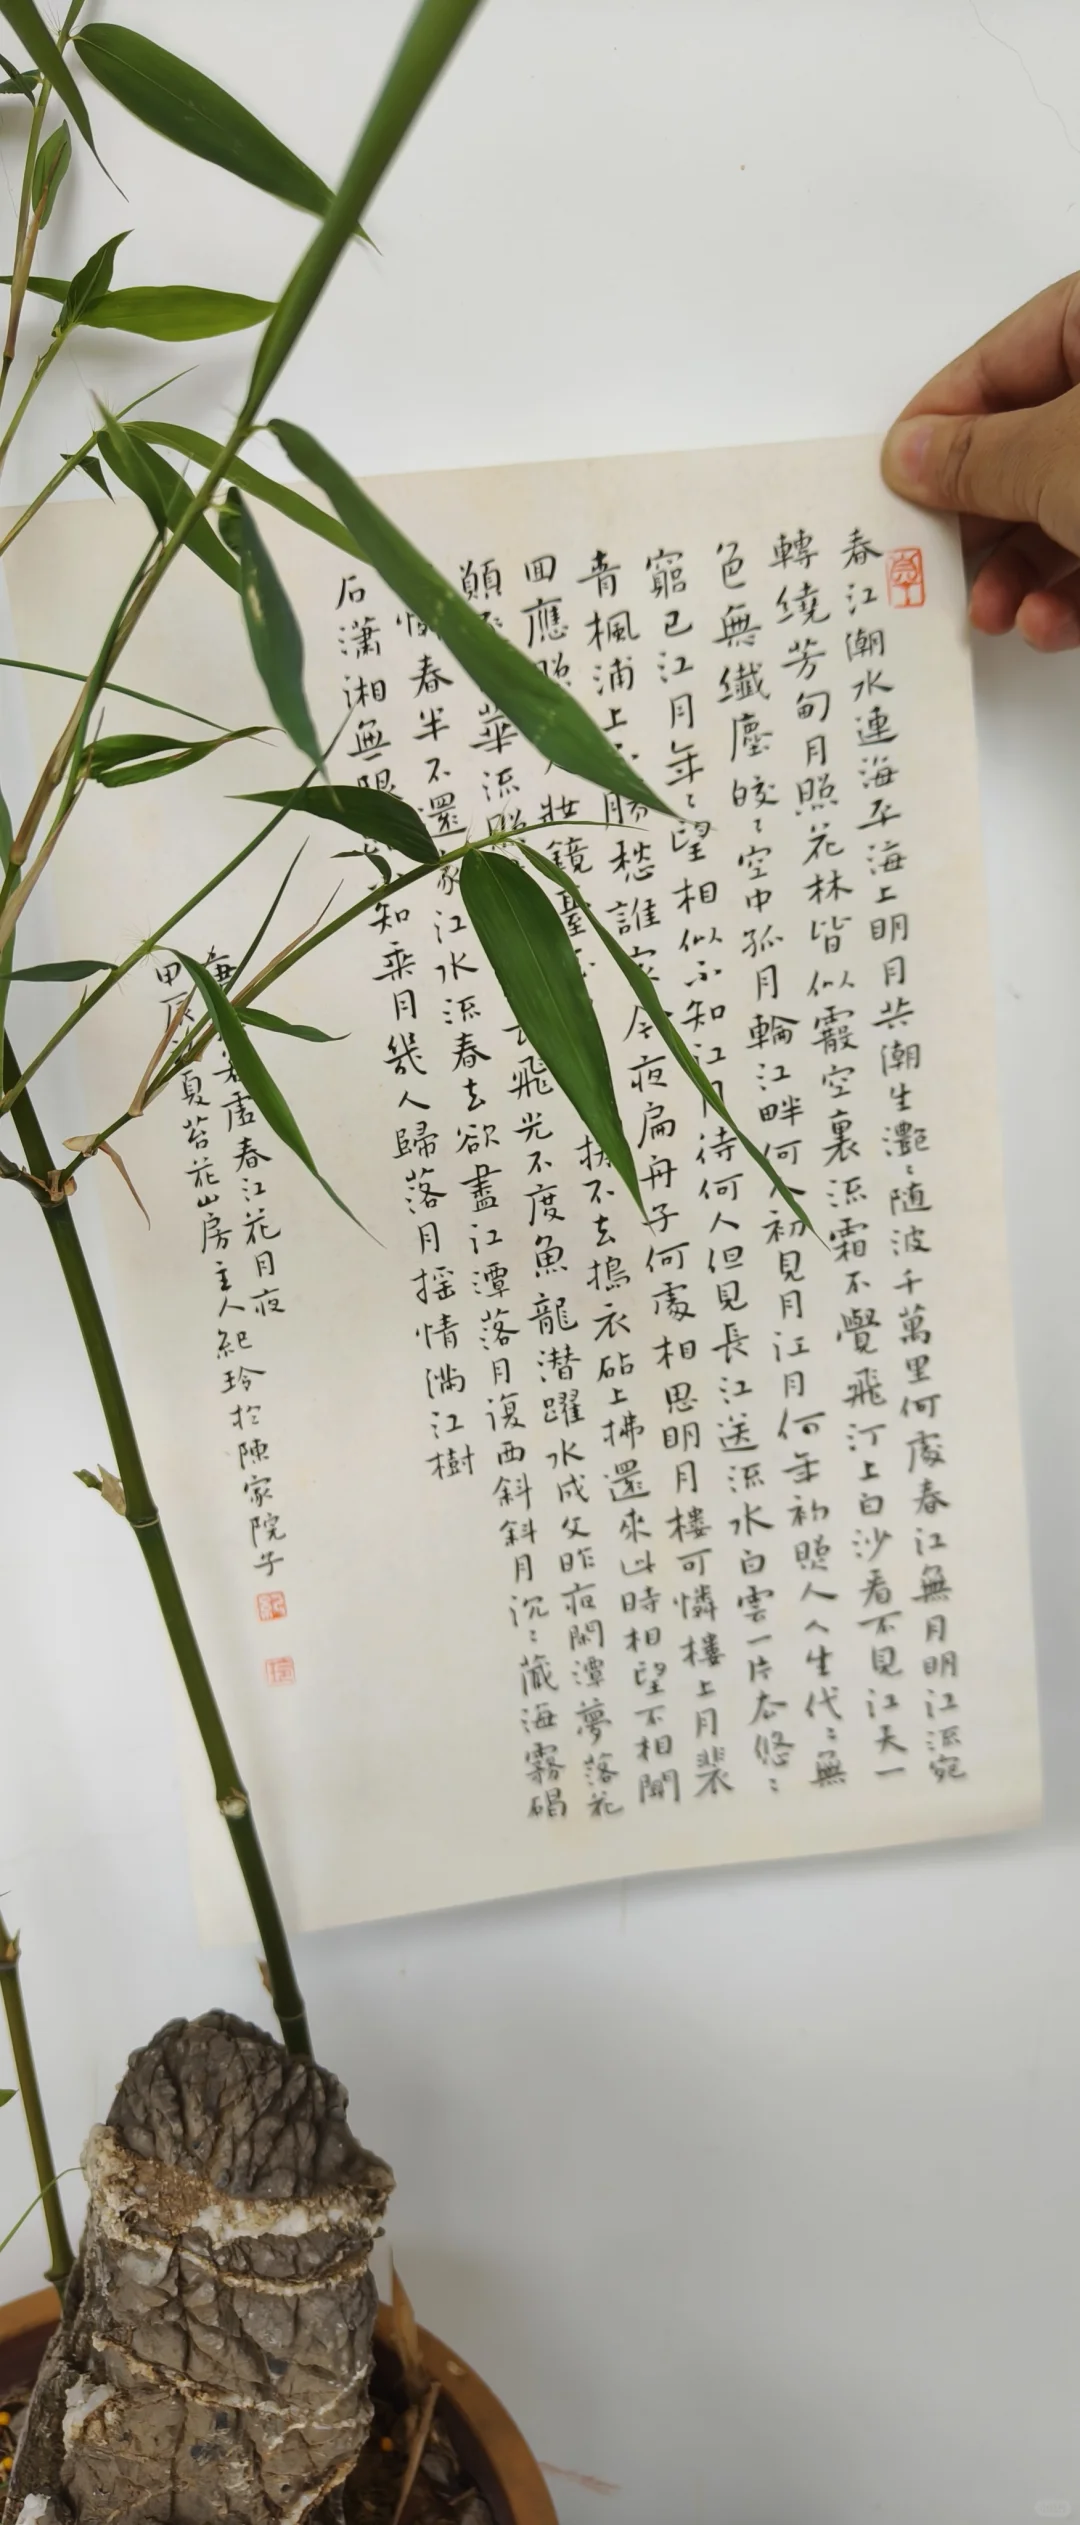 春江潮水連海平海上明月共潮生灧〻随波千萬里何處春江無月明江流宛
轉繞芳甸月照花林皆似霰空裏流霜不覺飛汀上白沙看不見江天一
色無纖塵皎〻空中孤月輪江畔何人初見月江月何年初照人人生代〻無
窮已江月年〻望相似不知江月待何人但見長江送流水白雲一片去悠〻
青楓浦上不勝愁誰家今夜扁舟子何處相思明月樓可憐樓上月裴
回應照人妝鏡臺捲不去搗衣砧上拂還來此時相望不相聞
願華流照長飛光不度魚龍潜躍水成文昨夜閑潭夢落花
憐春半不還家江水流春去欲盡江潭落月復西斜斜月沉〻藏海霧碣
石瀟湘無限知乘月幾人歸落月摇情滿江樹
若虚春江花月夜
甲辰夏苔花山房主人紀玲於陳家院子